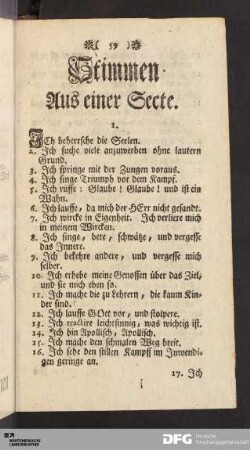 ( 59 )
Stimmen
Aus einer Secte.
1.
JCh beherrsche die Seelen.
2. Jch suche viele anzuwerben ohne lautern
Grund.
3. Jch springe mit der Zungen voraus.
4. Jch singe Triumph vor dem Kampf.
5. Jch ruffe: Glaube! Glaube! und ist ein
Wahn.
6. Jch lauffe, da mich der HErr nicht gesandt.
7. Jch wircke in Eigenheit. Jch verliere mich
in meinem Wircken.
8. Jch singe, bete, schwätze, und vergesse
das Innere.
9. Jch bekehre andere, und vergesse mich
selber.
10. Jch erhebe meine Genossen über das Ziel,
und sie mich eben so.
11. Jch mache die zu Lehrern, die kaum Kin-
der sind.
12. Jch lauffe GOtt vor, und stolpere.
13. Jch tractire leichtsinnig, was wichtig ist.
14. Jch bin Apollisch, Apollisch.
15. Jch mache den schmalen Weg breit.
16. Jch sehe den stillen Kampff im Inwendi-
gen geringe an.
17. Jch
DFG Deutsche
Forschungsgemeinschaft